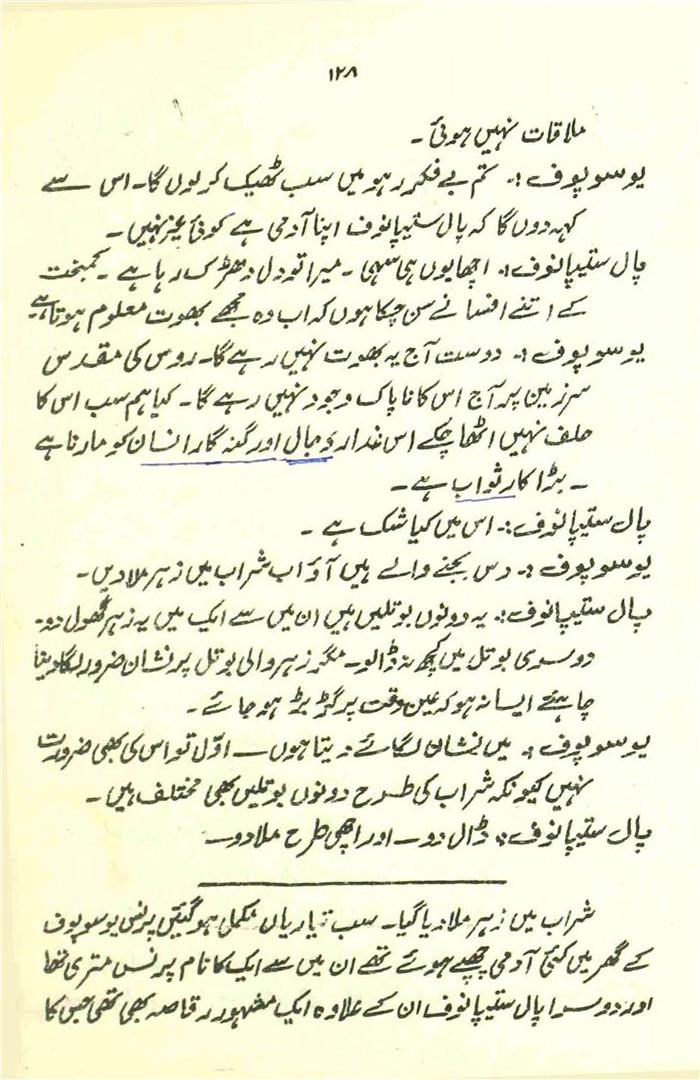 ۱۲۸
ملاقات نہیں ہوئی۔
یوسوپوف :۔ تم بے فکر رہو میں سب ٹھیک کر لوں گا۔ اس سے
کہہ دوں گا کہ پال ستیپانوف اپنا آدمی ہے کوئی غیر نہیں۔
پال ستیپانوف :۔ اچھا یوں ہی سہی۔ میرا تو دل دھڑک رہا ہے۔ کمبخت
کے اتنے افسانے سن چکا ہوں کہ اب وہ مجھے بھوت معلوم ہوتا ہے۔
یوسوپوف :۔ دوست آج یہ بھوت نہیں رہے گا۔ روس کی مقدس
سرزمین پر آج اس کا ناپاک وجود نہیں رہے گا۔ کیا ہم سب اس کا
حلف نہیں اٹھا چکے اس غدار دجال اور گنہ گار انسان کو مارنا ہے
۔ بڑا کار ثواب ہے۔
پال ستیپانوف :۔ اس میں کیا شک ہے۔
یوسوپوف :۔ دس بجنے والے ہیں آؤ اب شراب میں زہر ملا دیں۔
پال ستیپانوف :۔ یہ دونوں بوتلیں ہیں ان میں سے ایک میں یہ زہر گھول دو۔
دوسری بوتل میں کچھ نہ ڈالو۔ مگر زہر والی بوتل پر نشان ضرور لگا دینا
چاہئے ایسا نہ ہو کہ عین وقت پر گڑ بڑ ہو جائے۔
یوسوپوف :۔ میں نشان لگائے دیتا ہوں۔ اوّل تو اس کی بھی ضرورت
نہیں کیونکہ شراب کی طرح دونوں بوتلیں بھی مختلف ہیں۔
پال ستیپانوف :۔ ڈال دو۔ اور اچھی طرح ملا دو۔
شراب میں زہر ملا دیا گیا۔ سب تیاریاں مکمل ہو گئیں پرنس یوسوپوف
کے گھر میں کئی آدمی چھپے ہوئے تھے ان میں سے ایک کا نام پرنس متری تھا
اور دوسرا پال ستیپانوف ان کے علاوہ ایک مشہور رقاصہ بھی تھی جس کا